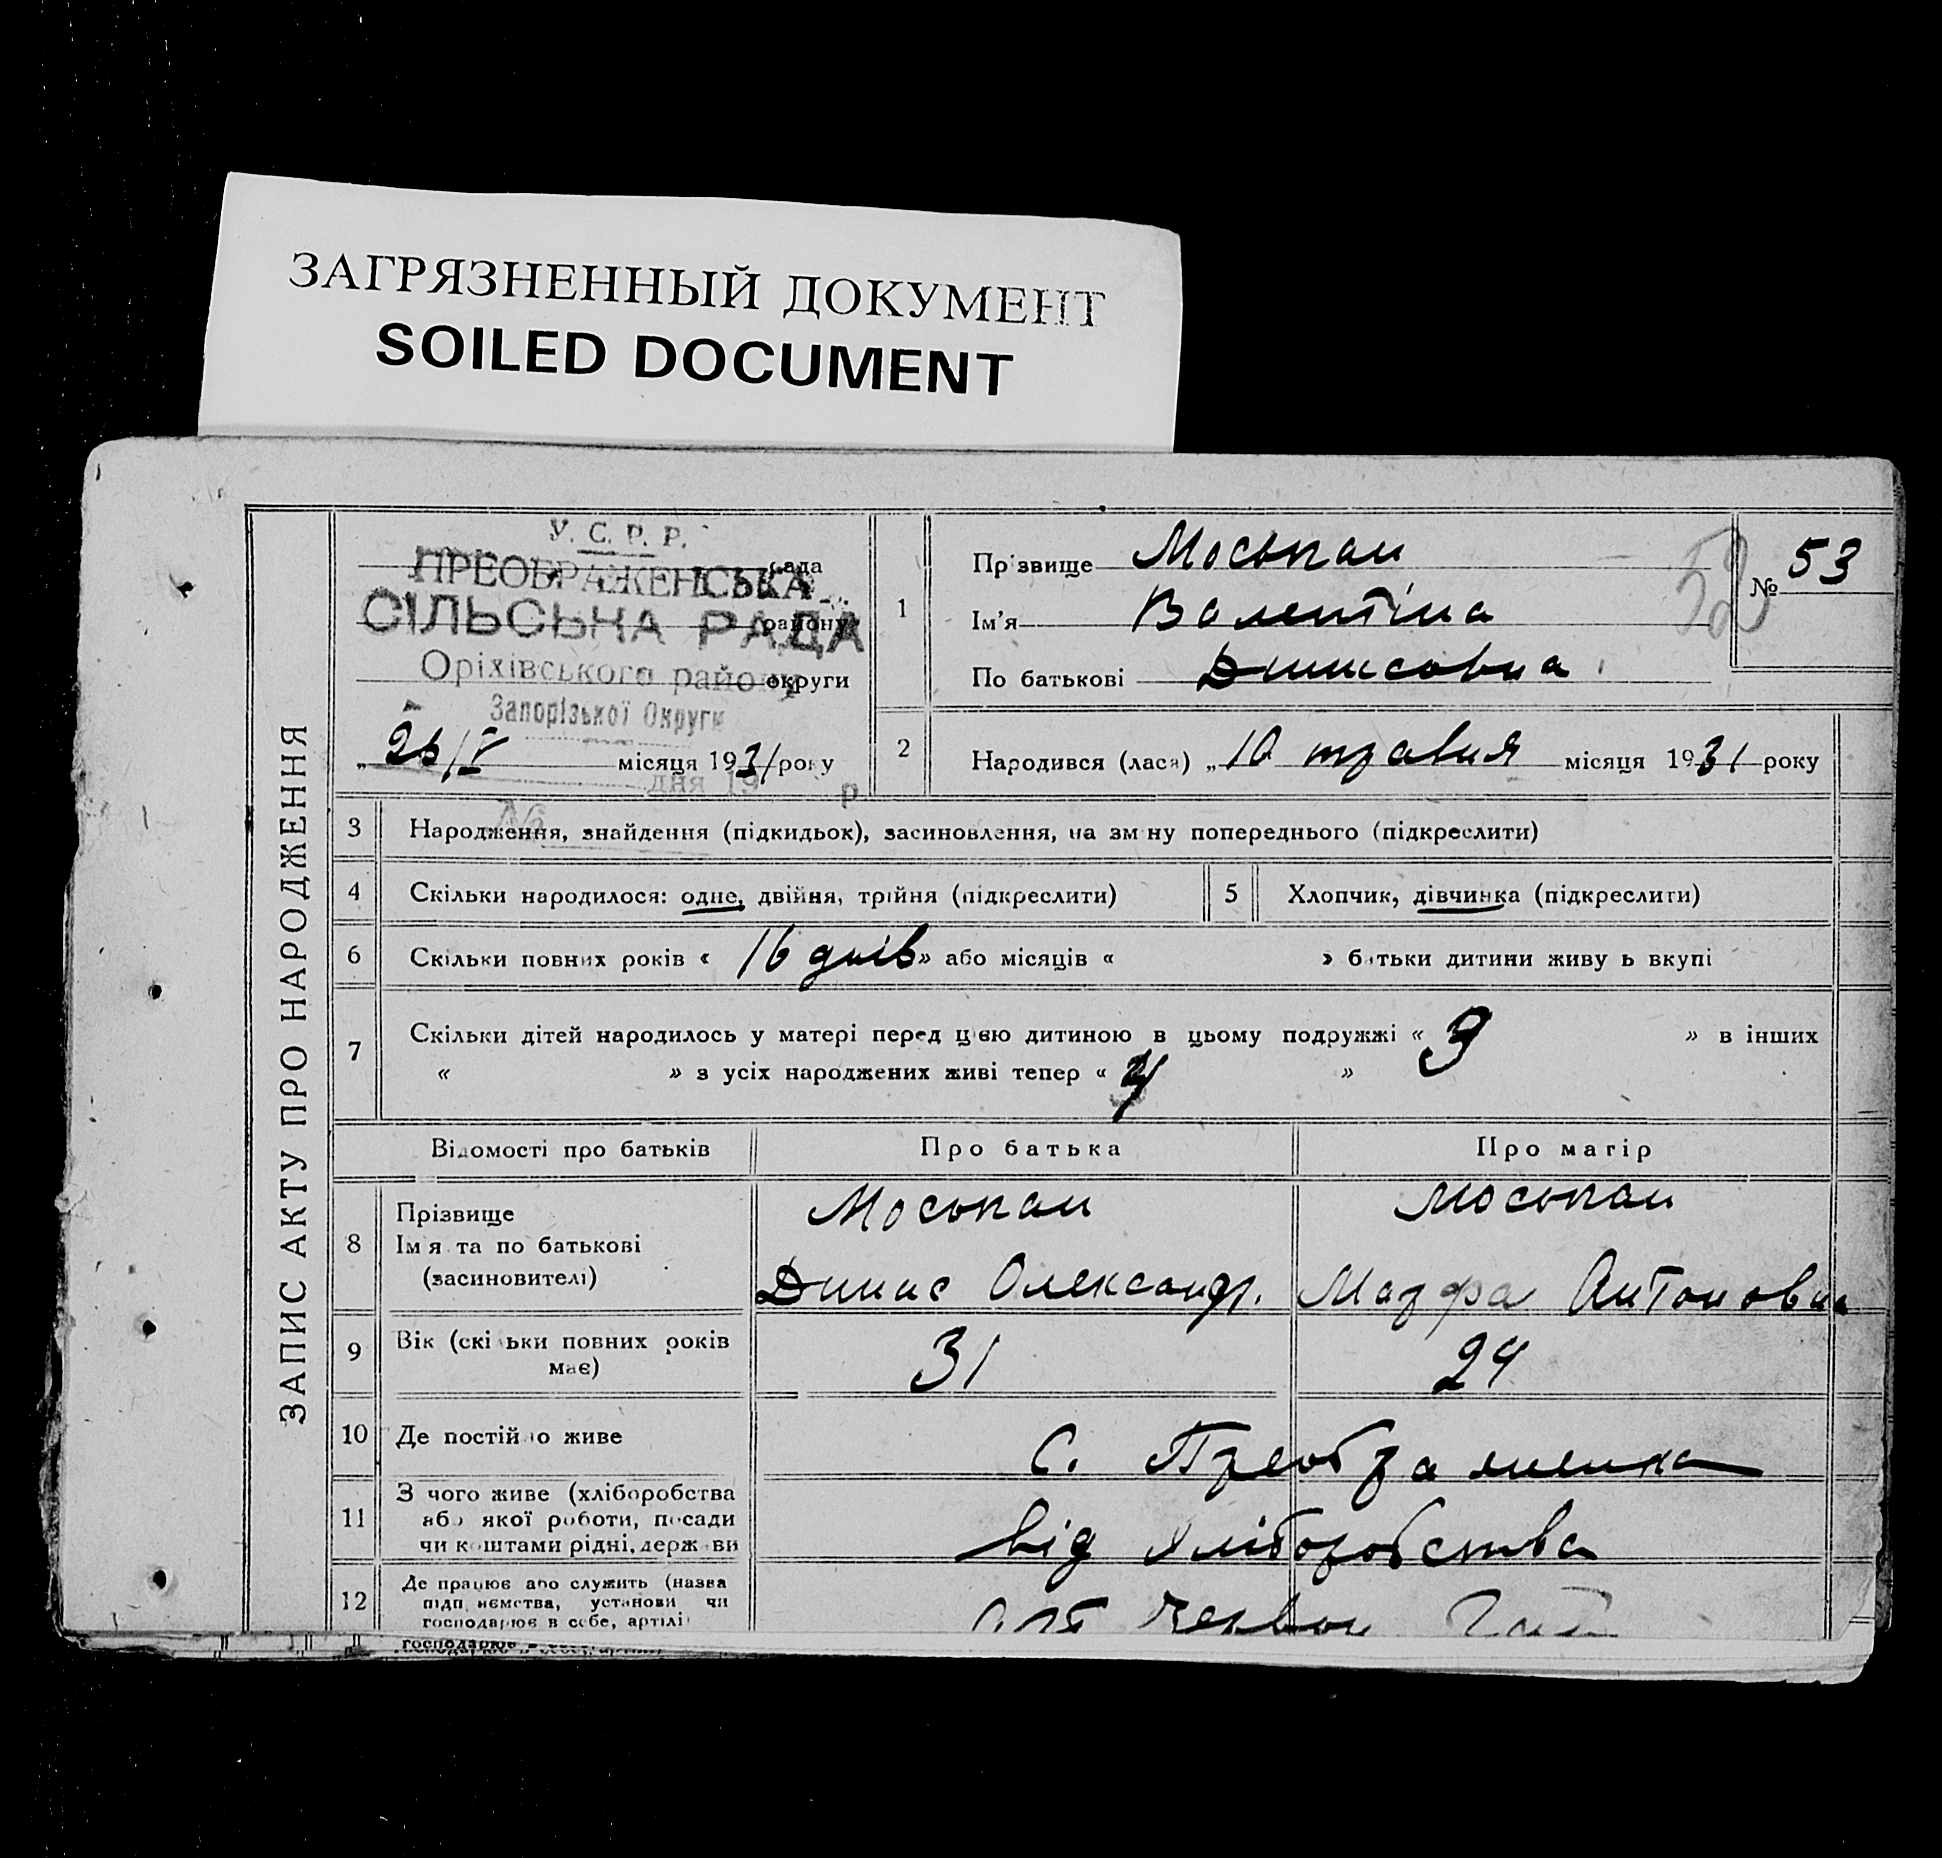 ЗАГРЯЗНЕННЫЙ ДОКУМЕНТ
SOILED DOCUMENT
ЗАПИС АКТУ ПРО НАРОДЖЕННЯ
У. С. Р. Р.
ПРЕОБРАЖЕНСЬКА рада
СІЛЬСЬКА РАДА району
Оріхівського району округи
Запорізької Округи
„ 26/V місяця 1931 року
дня 19 р.
№
1
Прізвище Моськпан
Ім'я Валентіна
По батькові Динисовна
52
№ 53
2
Народився (лася) „10 травня місяця 1931 року
3 Народження, знайдення (підкидьок), засиновлення, на зміну попереднього (підкреслити)
4 Скільки народилося: одне, двійня, трійня (підкреслити)
5 Хлопчик, дівчинка (підкреслити)
6 Скільки повних років « 16 днів » або місяців « » батьки дитини живуть вкупі
7 Скільки дітей народилось у матері перед цією дитиною в цьому подружжі « 3 » в інших
« » з усіх народжених живі тепер « 4 »
Відомості про батьків Про батька Про матір
8 Прізвище Моськпан Моськпан
Ім'я та по батькові
(засиновителі) Динис Олександр. Марфа Антоновна
9 Вік (скільки повних років
має) 31 24
10 Де постійно живе С. Преображенка
11 З чого живе (хліборобства
або якої роботи, посади
чи коштами рідні, держави від хліборобства
12 Де працює або служить (назва
підприємства, установи чи
господарює в себе, артілі
господарює в себе,